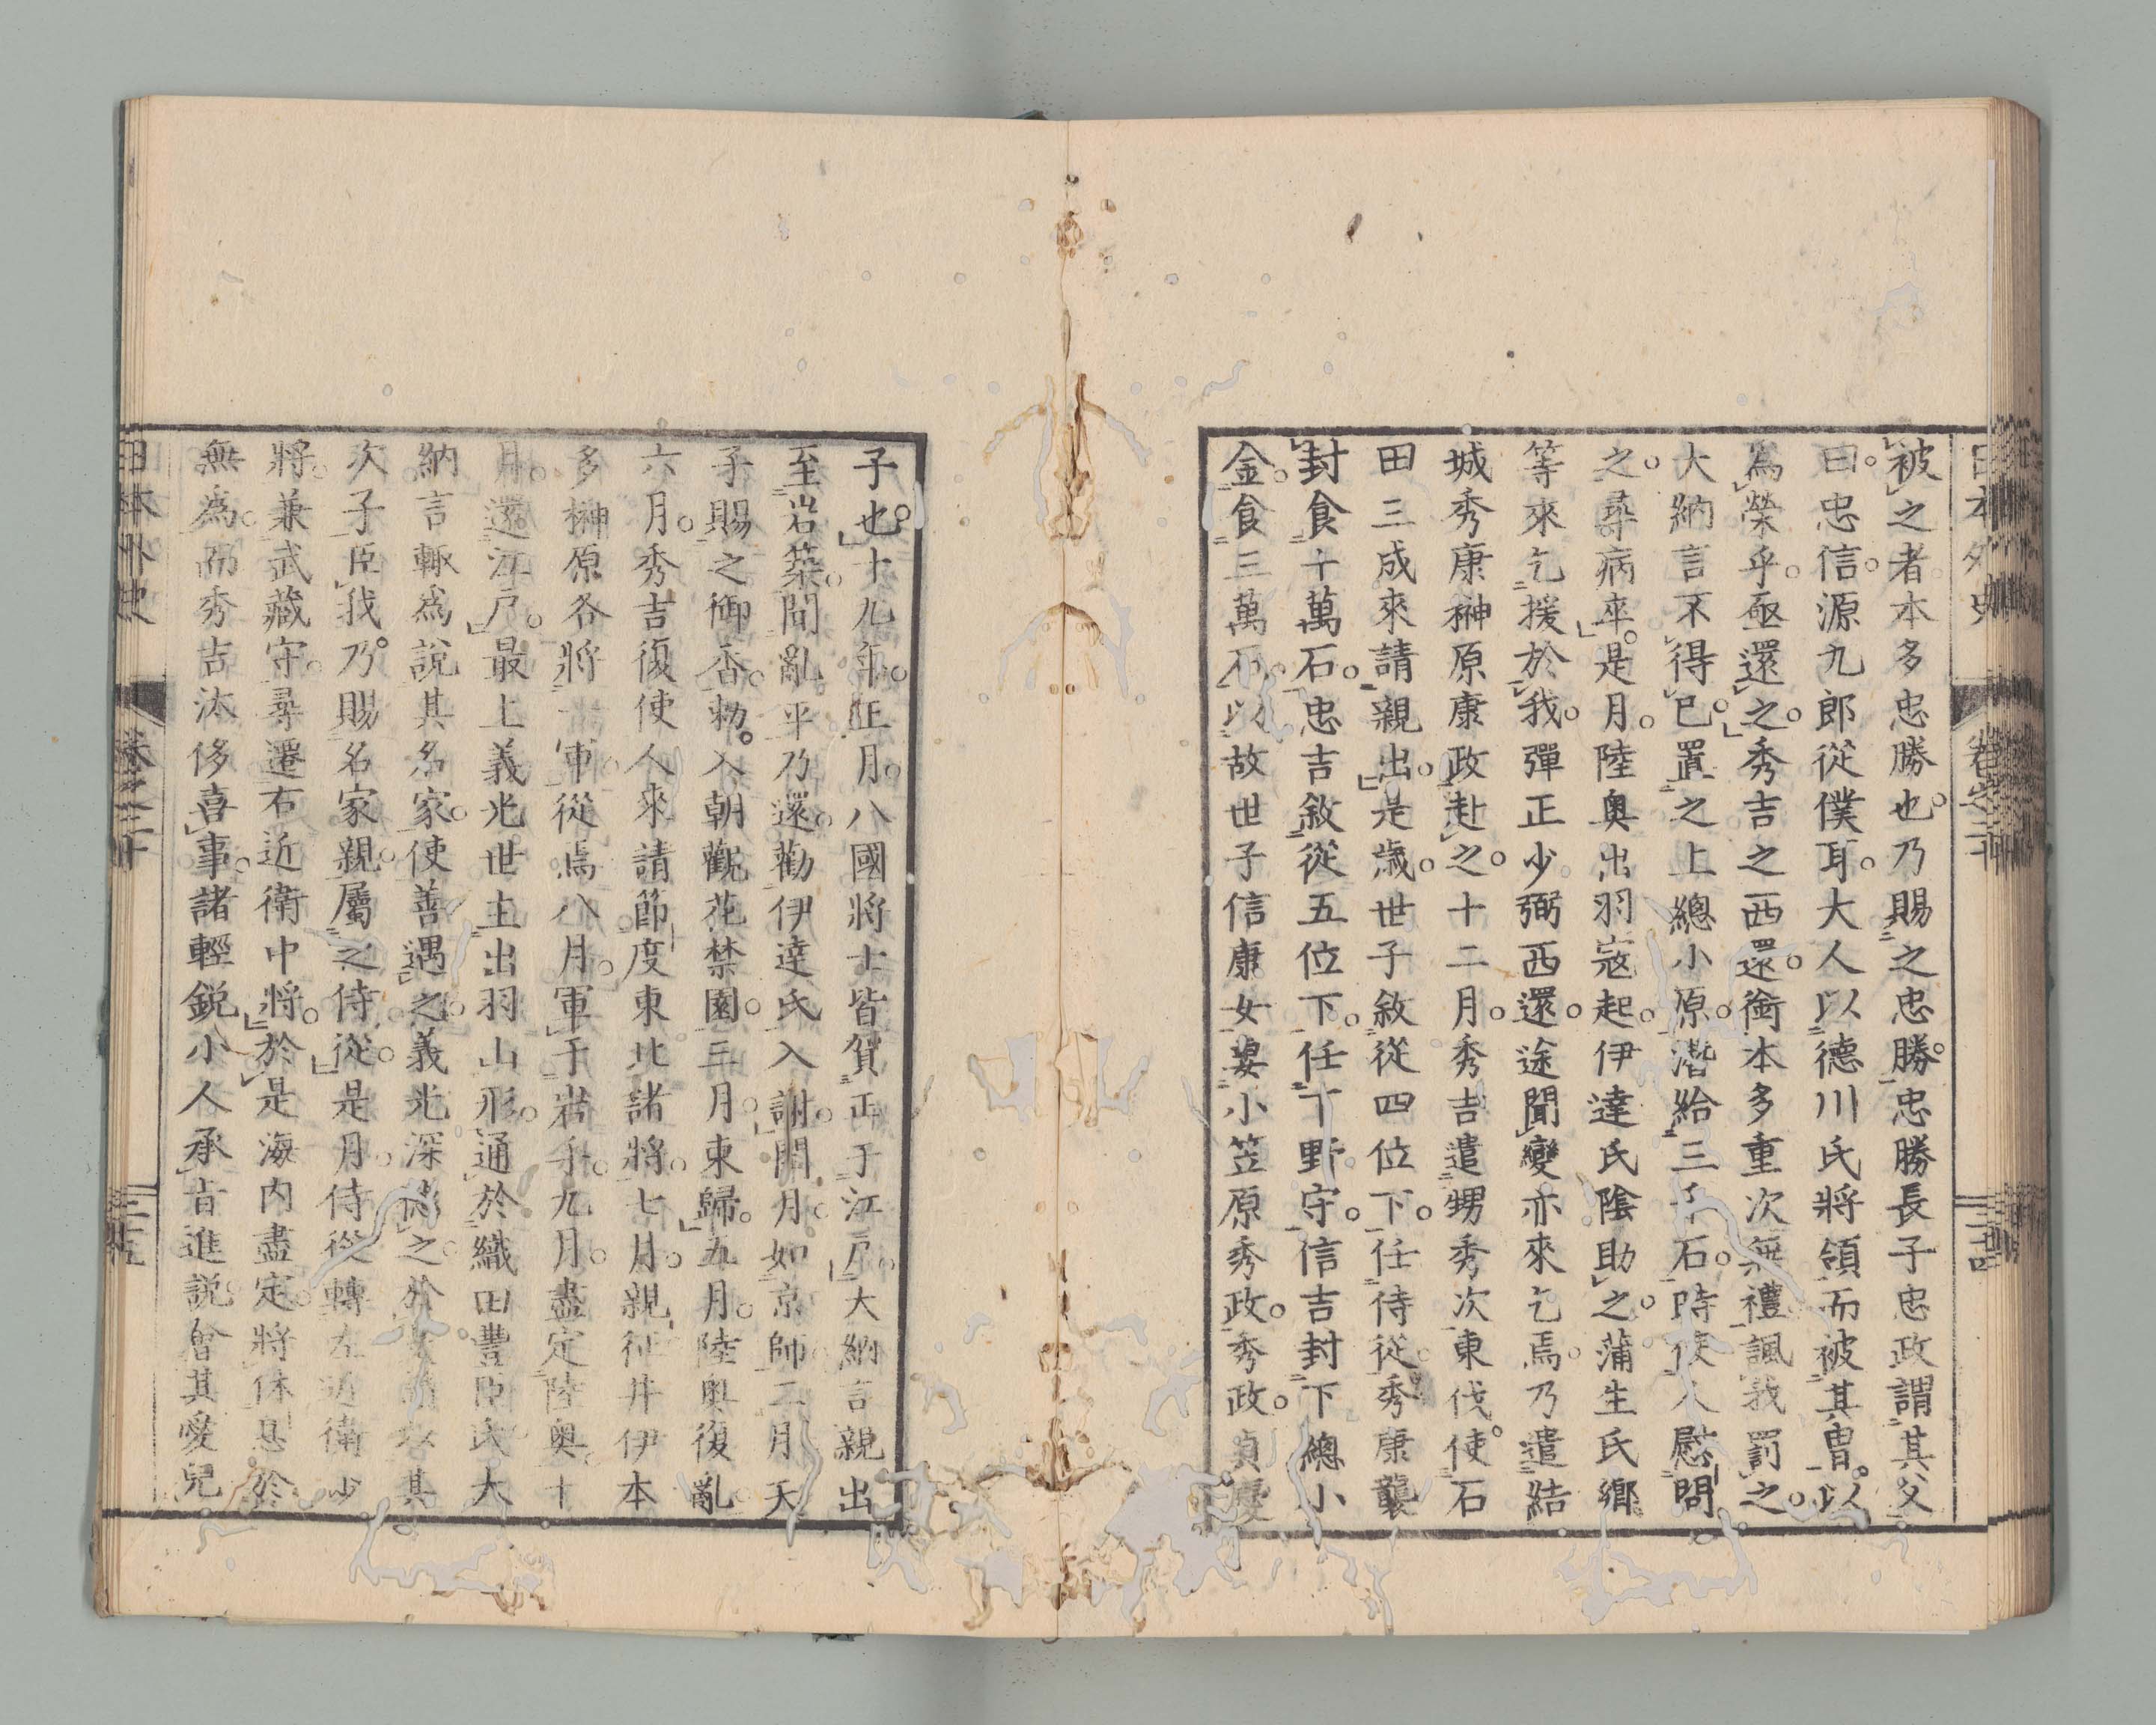 日本外史 卷之二十 二十四
被之者本多忠勝也乃賜之忠勝忠勝長子忠政謂其父
曰忠信源九郎從僕耳大人以德川氏將領而被其胄以
爲榮乎亟還之秀吉之西還銜本多重次無禮諷我罰之
大納言不得已置之上總小原潛給三千石時使人慰問
之尋病卒是月陸奧出羽寇起伊達氏陰助之蒲生氏鄉
等來乞援於我彈正少弼西還途聞變亦來乞焉乃遣結
城秀康榊原康政赴之十二月秀吉遣甥秀次東伐使石
田三成來請親出是歲世子敘從四位下任侍從秀康襲
封食十萬石忠吉敘從五位下任下野守信吉封下總小
金食三萬石以故世子信康女妻小笠原秀政秀政貞慶
子也十九年正月八國將士皆賀正于江戶大納言親出
至岩築聞亂平乃還勸伊達氏入謝閏月如京師二月天
子賜之御香勅入朝觀花禁園三月東歸五月陸奧復亂
六月秀吉復使人來請節度東北諸將七月親征井伊本
多榊原各將一軍從焉八月軍于岩手九月盡定陸奧十
月還江戶最上義光世主出羽山形通於織田豐臣氏大
納言輙爲說其名家使善遇之義光深德之於是請以其
次子臣我乃賜名家親屬之侍從是月侍從轉左近衛少
將兼武藏守尋遷右近衛中將於是海內盡定將休息於
無爲而秀吉汰侈喜事諸輕銳小人承旨進說會其愛兒
日本外史 卷之二十 二十五